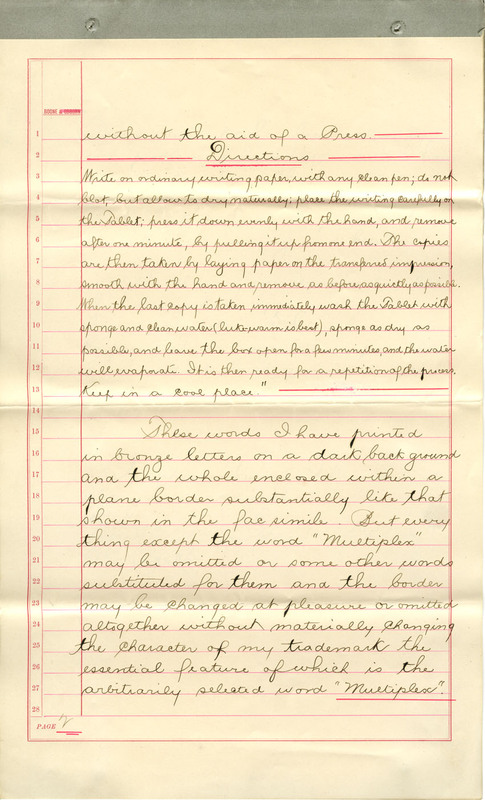 1 without the aid of a Press.
2 Directions
3 Write on ordinary writing paper, with any clean pen; do not
4 blot, but allow to dry naturally; place the writing carefully on
5 the Tablet; press it down evenly with the hand, and remove
6 after one minute, by pulling it up from one end. The copies
7 are then taken by laying paper on the transferred impression,
8 smooth with the hand and remove, as before, as quietly as possible.
9 When the last copy is taken, immediately wash the Tablet with
10 sponge and clean water (luke-warm is best), sponge as dry as
11 possible, and leave the box open for a few minutes, and the water
12 will evaporate. It is then ready for a repetition of the process.
13 Keep in a cool place."
14
15 These words I have printed
16 in bronze letters on a dark, back ground
17 and the whole enclosed within a
18 plane border substantially like that
19 shown in the fac simile. But every
20 thing except the word "Multiplex"
21 may be omitted or some other words
22 substituted for them and the border
23 may be changed at pleasure or omitted
24 altogether without materially changing
25 the character of my trademark the
26 essential feature of which is the
27 arbitrarily selected word "Multiplex".
28
PAGE 2